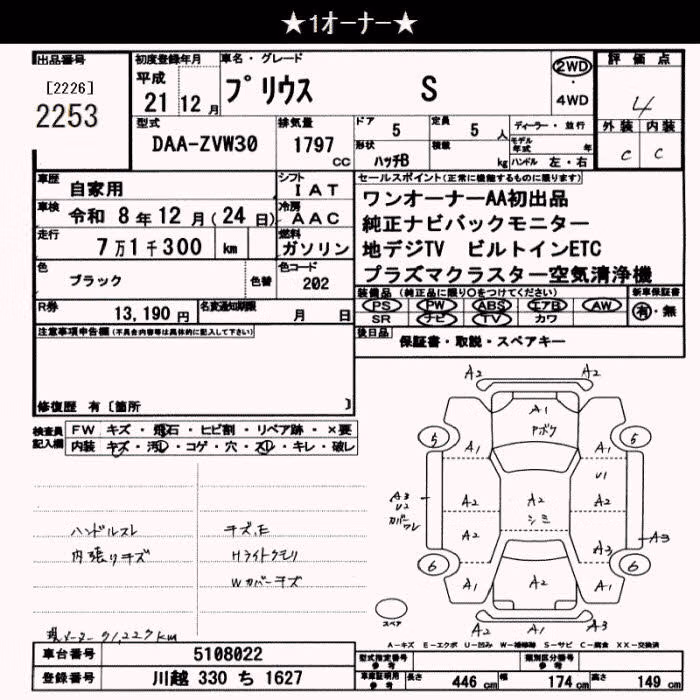 ★1オーナー★
出品番号
[2226]
2253
初度登録年月
平成
21 12 月
車名・グレード
プリウス S
2WD
4WD
評価点
4
外装 内装
C C
型式
DAA-ZVW30
排気量
1797
CC
ドア 5
定員 5 人
形状
ハッチB
積載
kg
ディーラー・並行
モデル年式 年
ハンドル 左・右
車歴
自家用
シフト
IAT
車検
令和 8 年 12 月 ( 24 日)
冷房
AAC
走行
7 万 1 千 300 km
燃料
ガソリン
色
ブラック
色替
色コード
202
R券
13,190 円
名変通知期限
月 日
セールスポイント(正常に機能するものに限ります)
ワンオーナーAA初出品
純正ナビバックモニター
地デジTV ビルトインETC
プラズマクラスター空気清浄機
装備品 (純正品に限り○をつけてください)
新車保証書
PS PW ABS エアB AW
有・無
SR ナビ TV カワ
後日品
保証書・取説・スペアキー
注意事項申告欄(不具合内容等は具体的に記入して下さい)
修復歴 有 [箇所 ]
検査員
記入欄
FW キズ・飛石・ヒビ割・リペア跡・×要
内装 キズ・汚レ・コゲ・穴・スレ・キレ・破レ
ハンドルスレ
内張りキズ
キズ,E
Hライトクモリ
Wカバーキズ
現メーター 71,227km
A2 A2
A1
Aボク
5 5
A1 A1
U1
A3
U2
カバーワレ
A2 A2 A2
シミ
A2
A3 A3
6 6
A1 A2 A1
A2 A1 A2
スペア
A-キズ E-エクボ U-凹み W-補修跡 S-サビ C-腐食 XX-交換済
車台番号
5108022
登録番号
川越 330 ち 1627
型式指定番号
参考
類別区分番号
参考
車庫証明用
参考
長さ 446 cm 幅 174 cm 高さ 149 cm